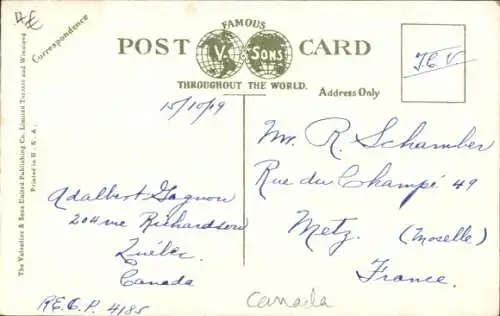 Correspondence
FAMOUS
POST V. & SONS CARD
THROUGHOUT THE WORLD.
Address Only
T.C.V
15/10/79
Mr. R. Schamber
Rue du Champé 49
Metz. (Moselle)
France.
Adalbert Gagnon
204 rue Richardson
Québec.
Canada
R.E.C.P. 4185
Canada
The Valentine & Sons United Publishing Co. Limited Toronto and Winnipeg
Printed in U.S.A.